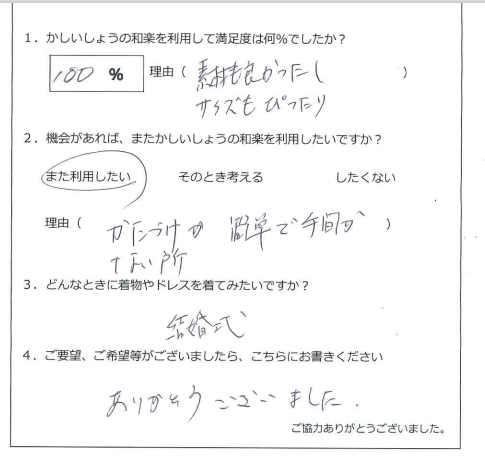 1．かしいしょうの和楽を利用して満足度は何%でしたか？
100 % 理由（ 素材も良かったし ）
サイズも ぴったり
2．機会があれば、またかしいしょうの和楽を利用したいですか？
また利用したい そのとき考える したくない
理由（ かたづけが 簡単で手間が ）
ない所
3．どんなときに着物やドレスを着てみたいですか？
結婚式
4．ご要望、ご希望等がございましたら、こちらにお書きください
ありがとう ございました．
ご協力ありがとうございました。